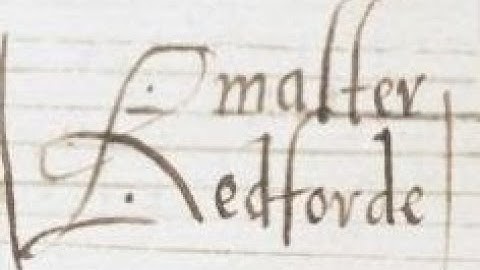 master
Redforde